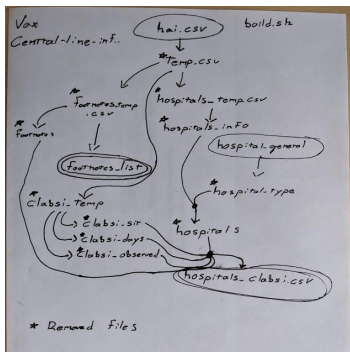 Vox
Central-line-inf..
hai.csv
build.sh
*Temp.csv
*footnotes_temp
.csv
*hospitals_temp.csv
*footnotes
*hospitals_info
hospital_general
footnotes_list
*hospital_type
*Clabsi_Temp
*Clabsi_sir
*hospitals
*Clabsi_days
*Clabsi_observed
hospitals_clabsi.csv
* Removed files